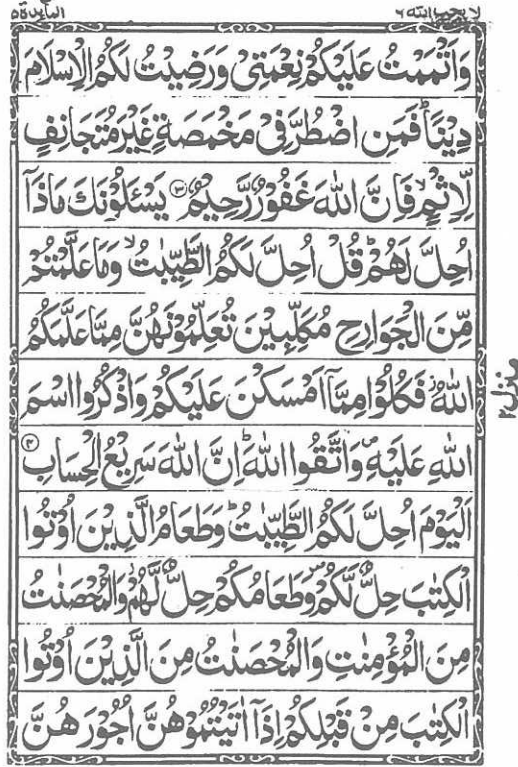 لا یحب الله ٦
المآئدة ٥
وَاَتۡمَمۡتُ عَلَيۡكُمۡ نِعۡمَتِىۡ وَرَضِيۡتُ لَكُمُ الۡاِسۡلَامَ
دِيۡنًا‌ؕ فَمَنِ اضۡطُرَّ فِىۡ مَخۡمَصَةٍ غَيۡرَ مُتَجَانِفٍ
لِّاِثۡمٍۙ فَاِنَّ اللّٰهَ غَفُوۡرٌ رَّحِيۡمٌ ۝۳ يَسۡـَٔلُوۡنَكَ مَاذَاۤ
اُحِلَّ لَهُمۡ‌ؕ قُلۡ اُحِلَّ لَـكُمُ الطَّيِّبٰتُ ۙ وَمَا عَلَّمۡتُمۡ
مِّنَ الۡجَـوَارِحِ مُكَلِّبِيۡنَ تُعَلِّمُوۡنَهُنَّ مِمَّا عَلَّمَكُمُ
اللّٰهُ‌ فَكُلُوۡا مِمَّاۤ اَمۡسَكۡنَ عَلَيۡكُمۡ وَاذۡكُرُوا اسۡمَ
اللّٰهِ عَلَيۡهِ‌ وَاتَّقُوا اللّٰهَ‌ ؕ اِنَّ اللّٰهَ سَرِيۡعُ الۡحِسَابِ ۝۴
اَلۡيَوۡمَ اُحِلَّ لَـكُمُ الطَّيِّبٰتُ‌ ؕ وَطَعَامُ الَّذِيۡنَ اُوۡتُوا
الۡكِتٰبَ حِلٌّ لَّـكُمۡ وَطَعَامُكُمۡ حِلٌّ لَّهُمۡ‌ وَالۡمُحۡصَنٰتُ
مِنَ الۡمُؤۡمِنٰتِ وَالۡمُحۡصَنٰتُ مِنَ الَّذِيۡنَ اُوۡتُوا
الۡـكِتٰبَ مِنۡ قَبۡلِكُمۡ اِذَاۤ اٰتَيۡتُمُوۡهُنَّ اُجُوۡرَهُنَّ
منزل ۲